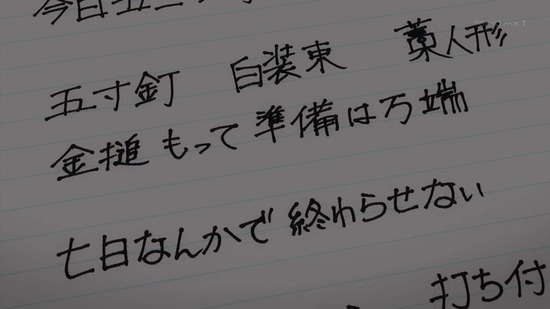 五寸釘 白装束 藁人形
金槌もって準備は万端
七日なんかで終わらせない
打ち付